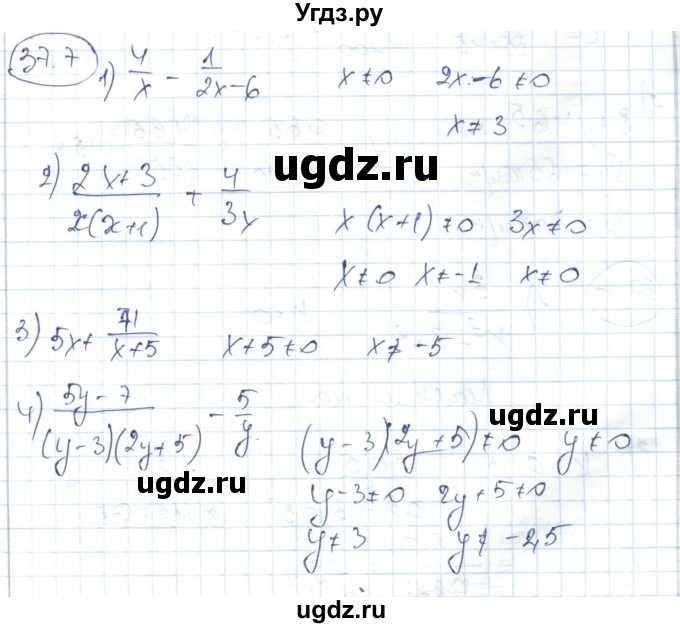 Угдз.ру
37.7
1) 4/x - 1/(2x-6)   x≠0   2x-6≠0
x≠3
ugdz.ru
2) (2x+3)/(x(x+1)) + 4/(3x)   x(x+1)≠0   3x≠0
x≠0   x≠-1   x≠0
3) 5x + 71/(x+5)   x+5≠0   x≠-5
4) (5y-7)/((y-3)(2y+5)) - 5/y   (y-3)(2y+5)≠0   y≠0
ugdz.ru
y-3≠0   2y+5≠0
y≠3   y≠-2,5
ugdz.ru